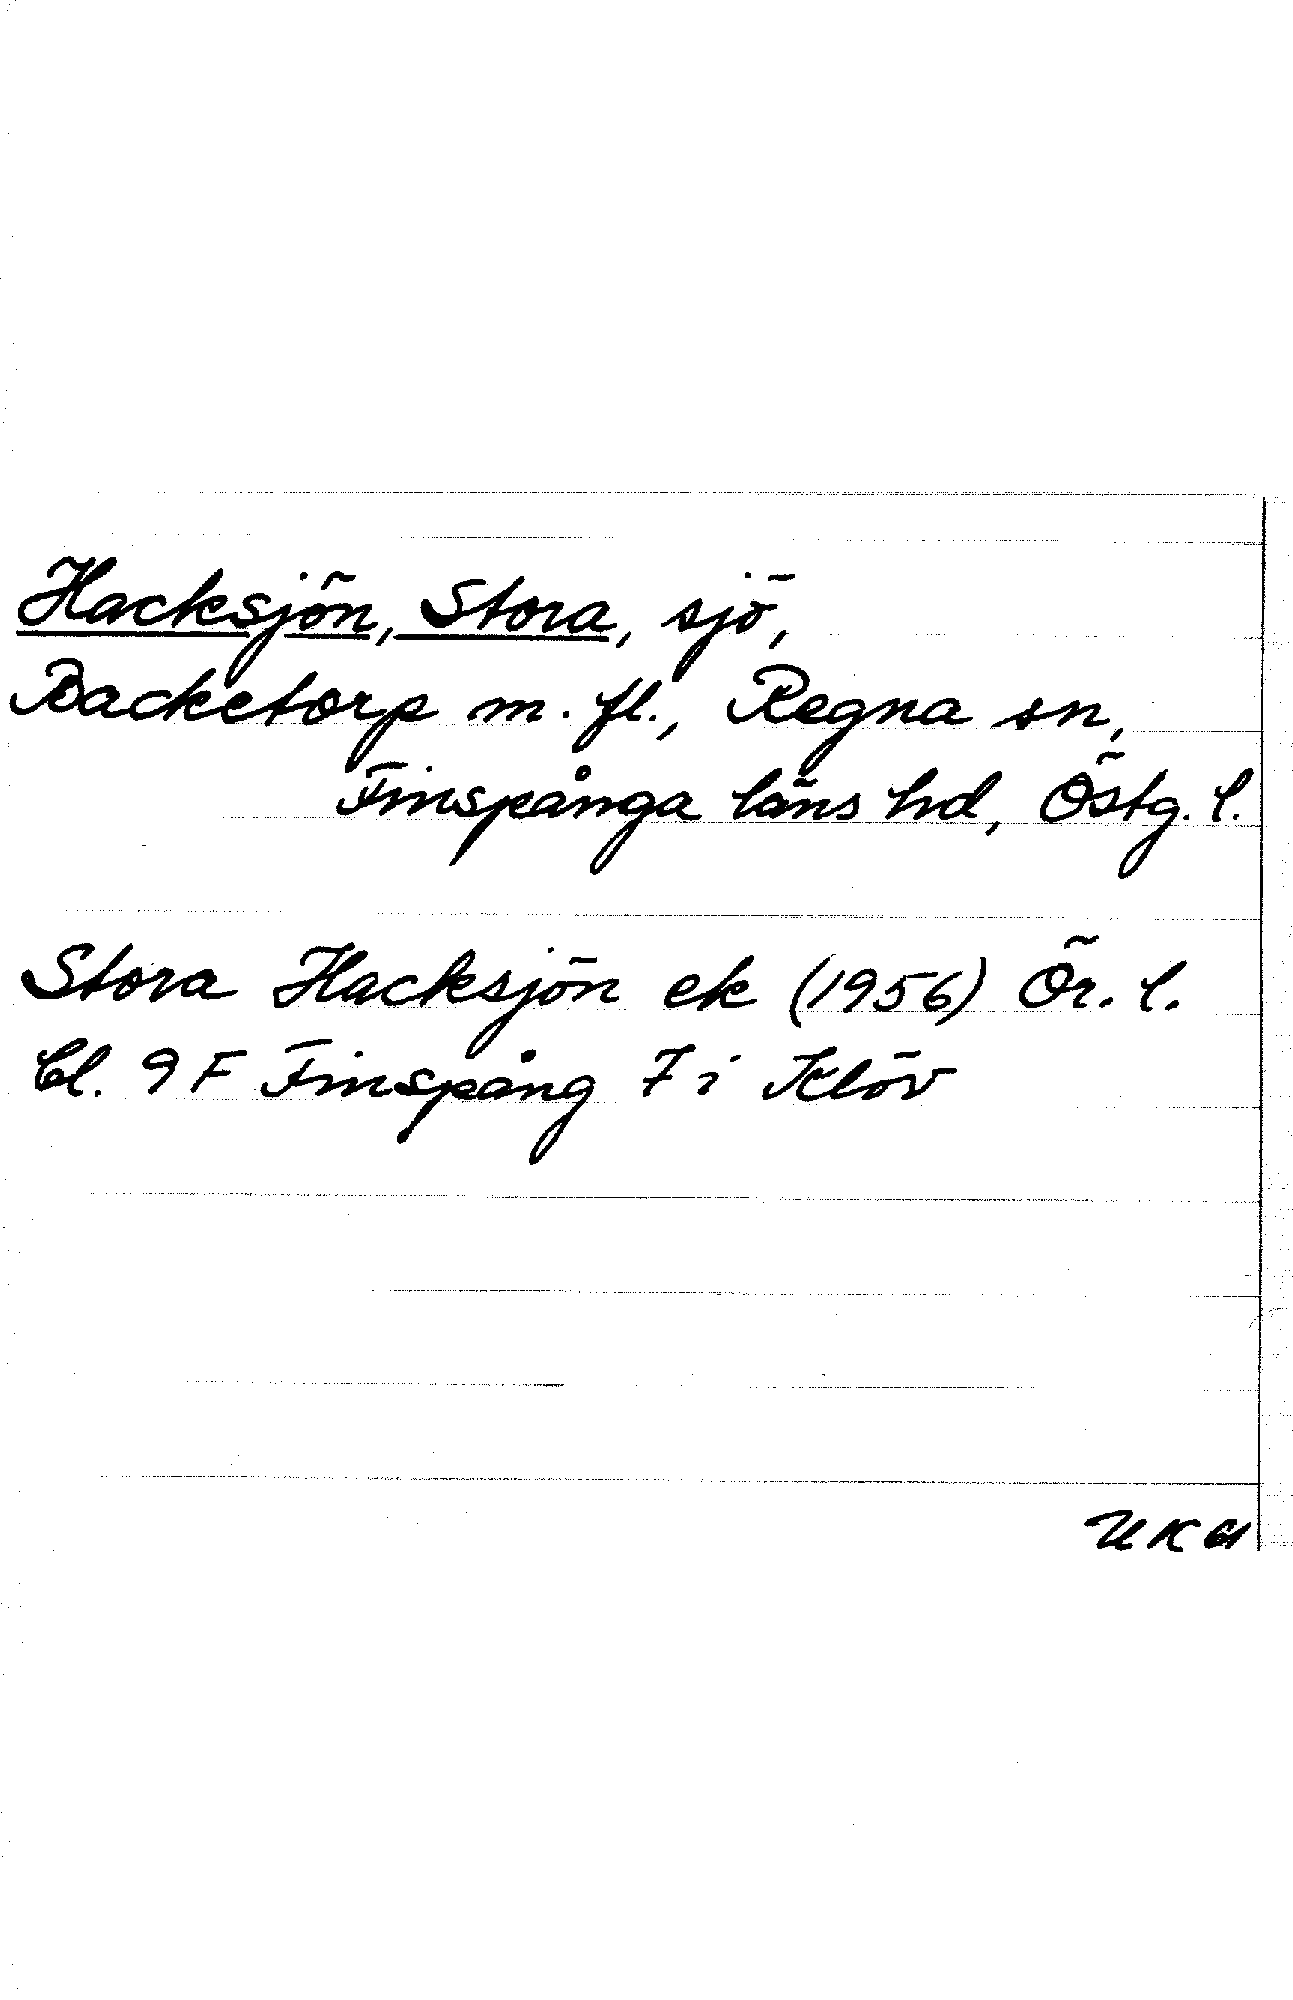 Hacksjön, Stora, sjö,
Backetorp m. fl., Regna sn,
Finspånga läns hd, Östg. l.
Stora Hacksjön ek (1956) Ör. l.
bl. 9 F Finspång 7 i Klöv
UK 61